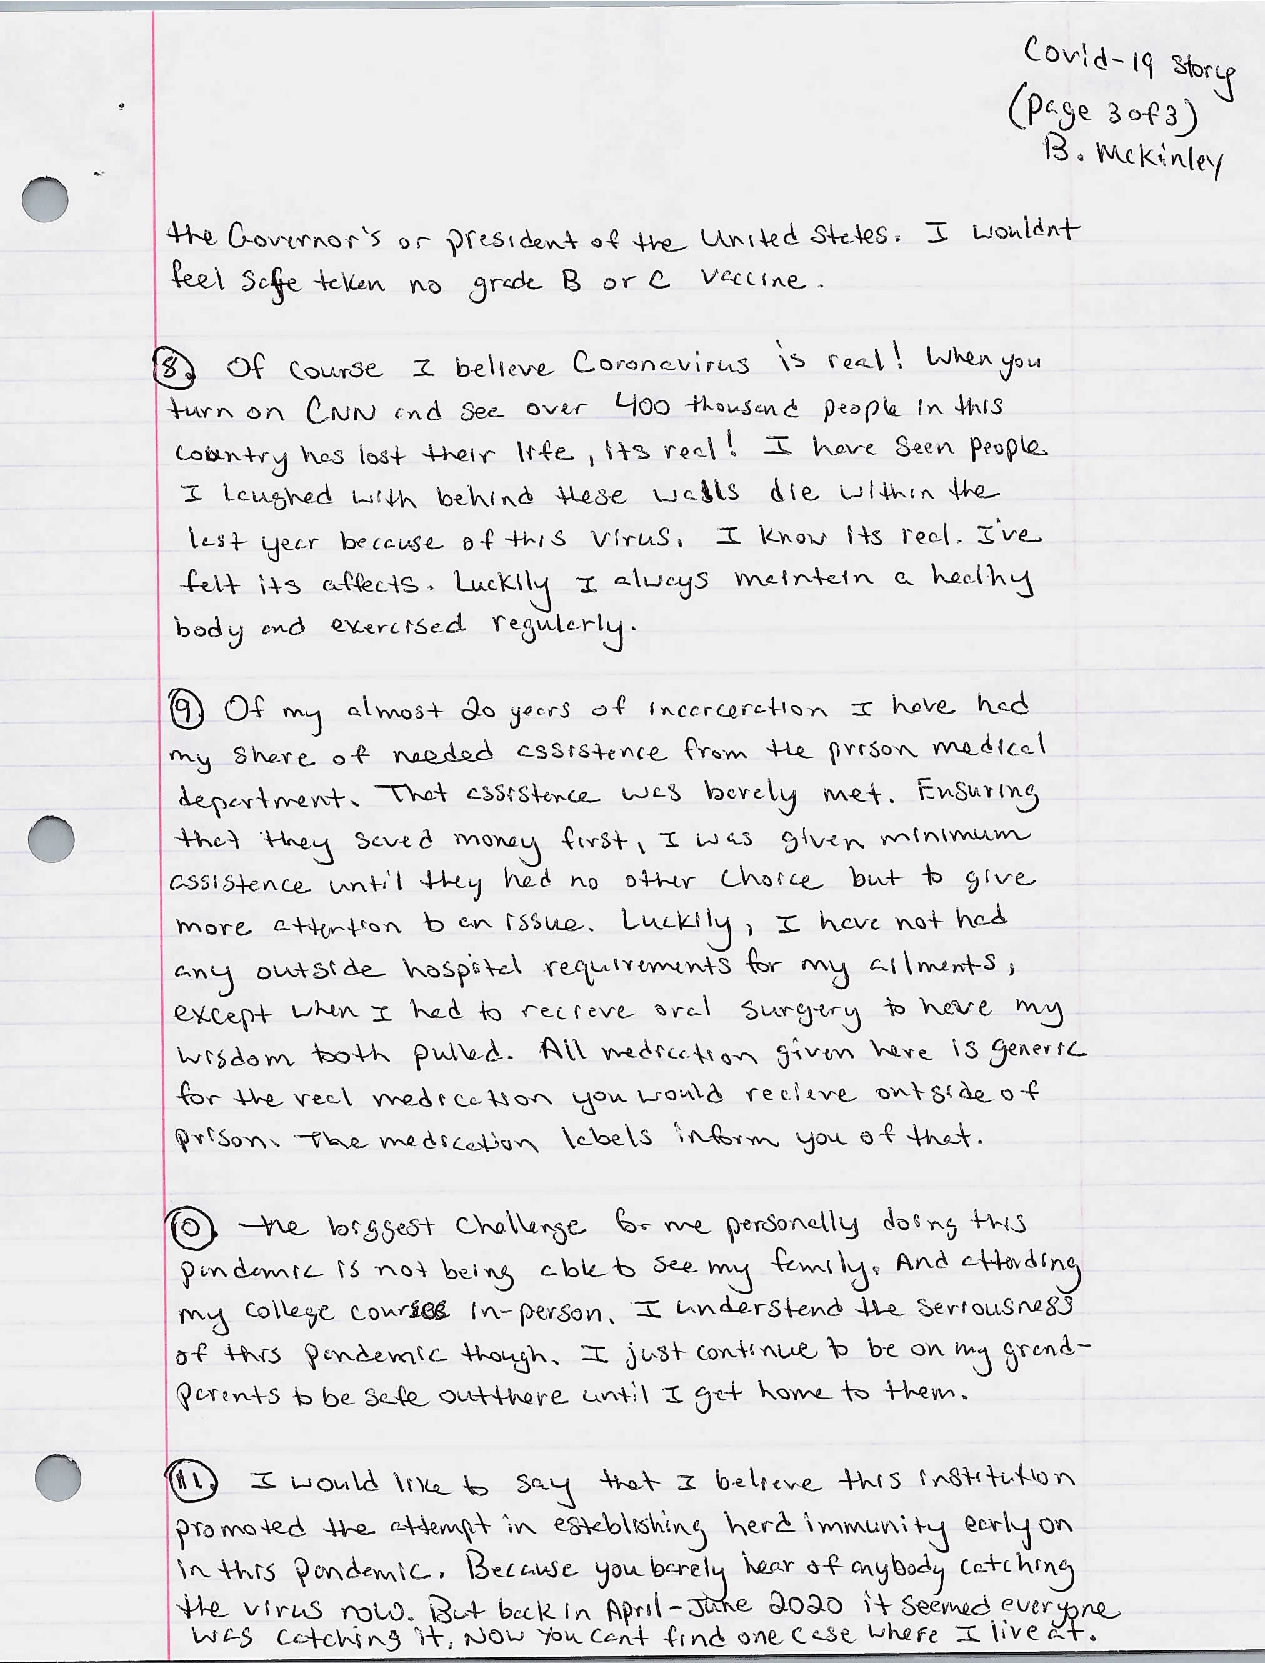 Covid-19 Story
(page 3 of 3)
B. McKinley
the Governor's or president of the United States. I wouldnt
feel safe taken no grade B or C vaccine.
8. Of course I believe Coronavirus is real! When you
turn on CNN and see over 400 thousand people in this
country has lost their life, its real! I have seen people
I laughed with behind these walls die within the
last year because of this virus. I know its real. I've
felt its affects. Luckily I always maintain a healhy
body and exercised regularly.
9. Of my almost 20 years of incarceration I have had
my share of needed assistence from the prison medical
department. That assistence was barely met. Ensuring
that they saved money first, I was given minimum
assistence until they had no other choice but to give
more attention to an issue. Luckily, I have not had
any outside hospital requirements for my ailments,
except when I had to recieve oral surgery to have my
wisdom tooth pulled. All medication given here is generic
for the real medication you would recieve outside of
prison. The medication labels inform you of that.
10. The biggest challenge for me personally doing this
pandemic is not being able to see my family. And attending
my college courses in-person. I understand the seriousness
of this pandemic though. I just continue to be on my grand-
parents to be safe outthere until I get home to them.
11. I would like to say that I believe this institution
promoted the attempt in establishing herd immunity early on
in this pandemic. Because you barely hear of anybody catching
the virus now. But back in April-June 2020 it seemed everyone
was catching it. Now you cant find one case where I live at.